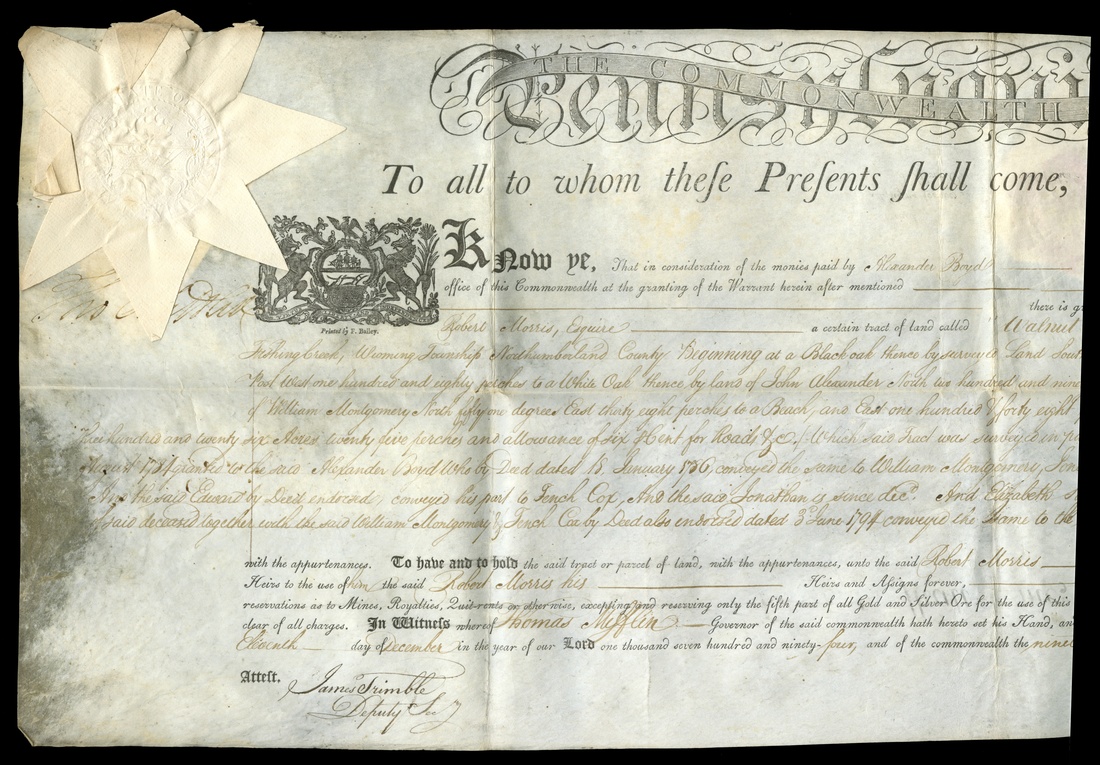 THE COMMONWEALTH
Pennsylvani
To all to whom theſe Preſents ſhall come,
Know ye, That in consideration of the monies paid by Alexander Boyd
office of this Commonwealth at the granting of the Warrant herein after mentioned
there is gr
Printed by F. Bailey.
Robert Morris, Esquire a certain tract of land called "Walnut
Fishingcreek, Wioming Township Northumberland County Beginning at a Black oak thence by surveyed Land Sout
Post West one hundred and eighty perches to a White Oak thence by land of John Alexander North two hundred and nine
of William Montgomery North fifty one degrees East thirty eight perches to a Beach, and East one hundred & forty eight
hundred and twenty six Acres twenty five perches and allowance of six Cent for Roads &c. Which said Tract was surveyed in pu
August granted to the said Alexander Boyd who by Deed dated January conveyed the same to William Montgomery, Jon
And the said Edward by Deed endorsed, conveyed his part to Tench Cox, And the said Jonathan is since decd. And Elizabeth
of said deceased together with the said William Montgomery & Tench Cox by Deed also endorsed dated 3d June 1794 conveyed the same to the
with the appurtenances. To have and to hold the said tract or parcel of land, with the appurtenances, unto the said Robert Morris
Heirs to the use of him the said Robert Morris his Heirs and Aſsigns forever,
reservations as to Mines, Royalties, Quit-rents or otherwise, excepting and reserving only the fifth part of all Gold and Silver Ore for the use of this
clear of all charges. In Witneſs whereof Thomas Mifflin Governor of the said commonwealth hath hereto set his Hand, an
Eleventh day of December in the year of our Lord one thousand seven hundred and ninety-four, and of the commonwealth the nine
Atteſt.
James Trimble
Deputy Secy